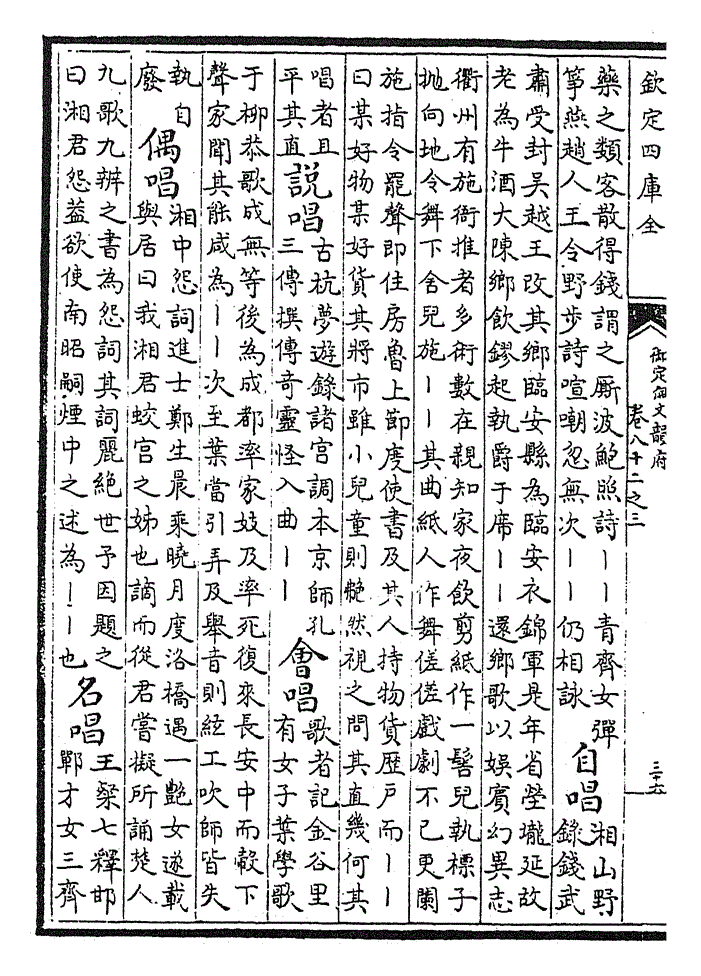 欽定四庫全
御定佩文韻府
卷八十二之三
三十六
藥之類客散得錢謂之厮波鮑照詩丨丨青齊女彈
箏燕趙人王令野步詩喧嘲忽無次丨丨仍相詠
自唱
湘山野
錄錢武
肅受封吴越王改其鄉臨安縣為臨安衣錦軍是年省塋壠延故
老為牛酒大陳鄉飲鏐起執爵于席丨丨還鄉歌以娛賓幻異志
衢州有施衙推者多術數在親知家夜飲剪紙作一髻兒執標子
抛向地令舞下舍兒施丨丨其曲紙人作舞傞傞戲劇不已更闌
施指令罷聲即住房魯上節度使書及其人持物貨歴戸而丨丨
曰某好物某好貨其將市雖小兒童則艴然視之問其直幾何其
唱者且
平其直
說唱
古杭夢遊錄諸宫調本京師孔
三傳撰傳奇靈怪入曲丨丨
會唱
歌者記金谷里
有女子葉學歌
于柳恭歌成無等後為成都率家妓及率死復來長安中而轂下
聲家聞其能咸為丨丨次至葉當引弄及舉音則絃工吹師皆失
執自
廢
偶唱
湘中怨詞進士鄭生晨乘曉月度洛橋遇一艷女遂載
與居曰我湘君蛟宫之姊也謫而從君嘗擬所誦楚人
九歌九辨之書為怨詞其詞麗絶世予因題之
曰湘君怨葢欲使南昭嗣煙中之述為丨丨也
名唱
王粲七釋邯
鄲才女三齊